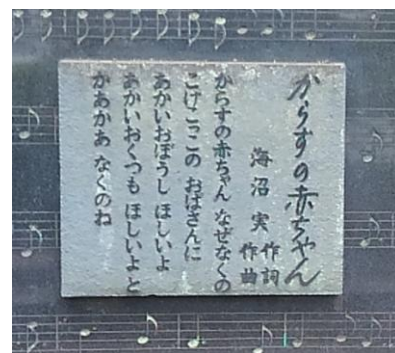 からすの赤ちゃん
海沼 実 作詞
作曲
からすの赤ちゃん なぜなくの
こけこっこの おばさんに
あかいおぼうし ほしいよ
あかいおくつも ほしいよと
かあかあ なくのね